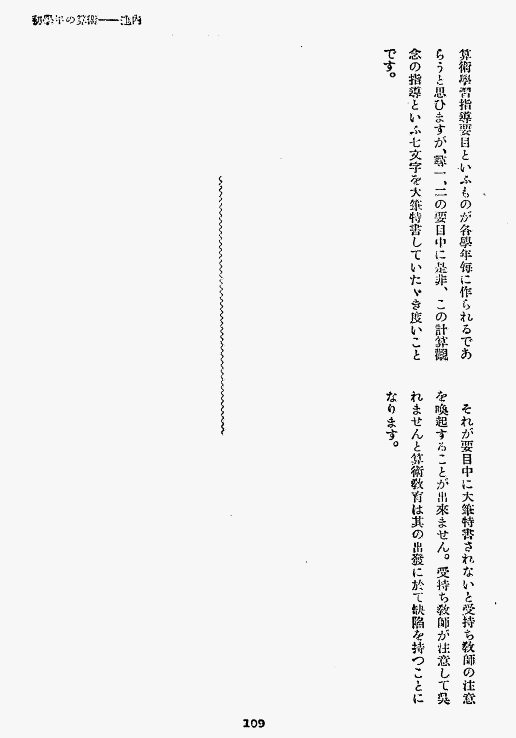 初學年の算術——池內
算術學習指導要目といふものが各學年每に作られるであ
らうと思ひますが、尋一、二の要目中に是非、この計算觀
念の指導といふ七文字を大筆特書していたゞき度いこと
です。
それが要目中に大筆特書されないと受持ち敎師の注意
を喚起することが出來ません。受持ち敎師が注意して吳
れませんと算術敎育は其の出發に於て缺陷を持つことに
なります。
109